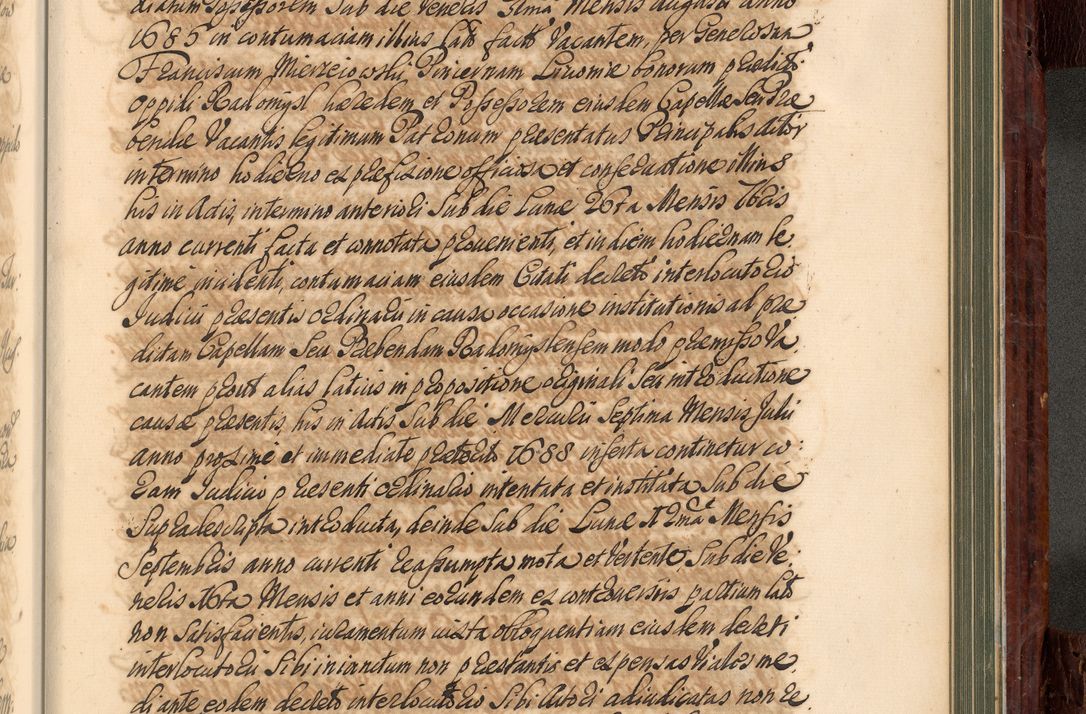 diatum Possessorem Sub die Veneris Mensis Augusti anno
1685 in contumaciam illius lato facto Vacantem, per Generosum
Franciscum Mierzeiowski, Pincernam Livoniæ bonorum prædicti
oppidi Radomysl hæredem et Possessorem eiusdem Capellæ seu Præ
bendæ Vacantis legitimum Patronum præsentatus Principalis Actor
in termino hodierno ex præfixione officiosa et conservatione illius
his in Actis, in termino anteriori Sub die Lunæ 26ta Mensis 7bris
anno currenti facta et connotata provenienti, et in diem hodiernam le
gitime incidenti, contumaciam eiusdem Citati decreto interlocutorio
Iudicii præsentis ordinarii in causa occasione institutionis ad præ
dictam Capellam Seu Præbendam Radomyslensem modo præmisso Va
cantem prout alias latius in propositione originali seu introductione
causæ præsentis his in Actis Sub die Mercurii Septima Mensis Julii
anno proxime et immediate præterito 1688 inserta continetur co:
ram Iudicio præsenti ordinario intentata et instituta Sub die
Supradescripta introducta, deinde Sub die Lunæ Mensis
Septembris anno currenti reassumpta mota et Vertente, Sub die Ve:
neris 16ta Mensis et anni eorundem ex controversiis partium lato
non Satisfacientis, iuramentum iuxta obloquentiam eiusdem decreti
interlocutorii Sibi iniunctum non præstantis et expensas Viales me
diante eodem decreto interlocutorio Sibi Actori adiudicatas non re